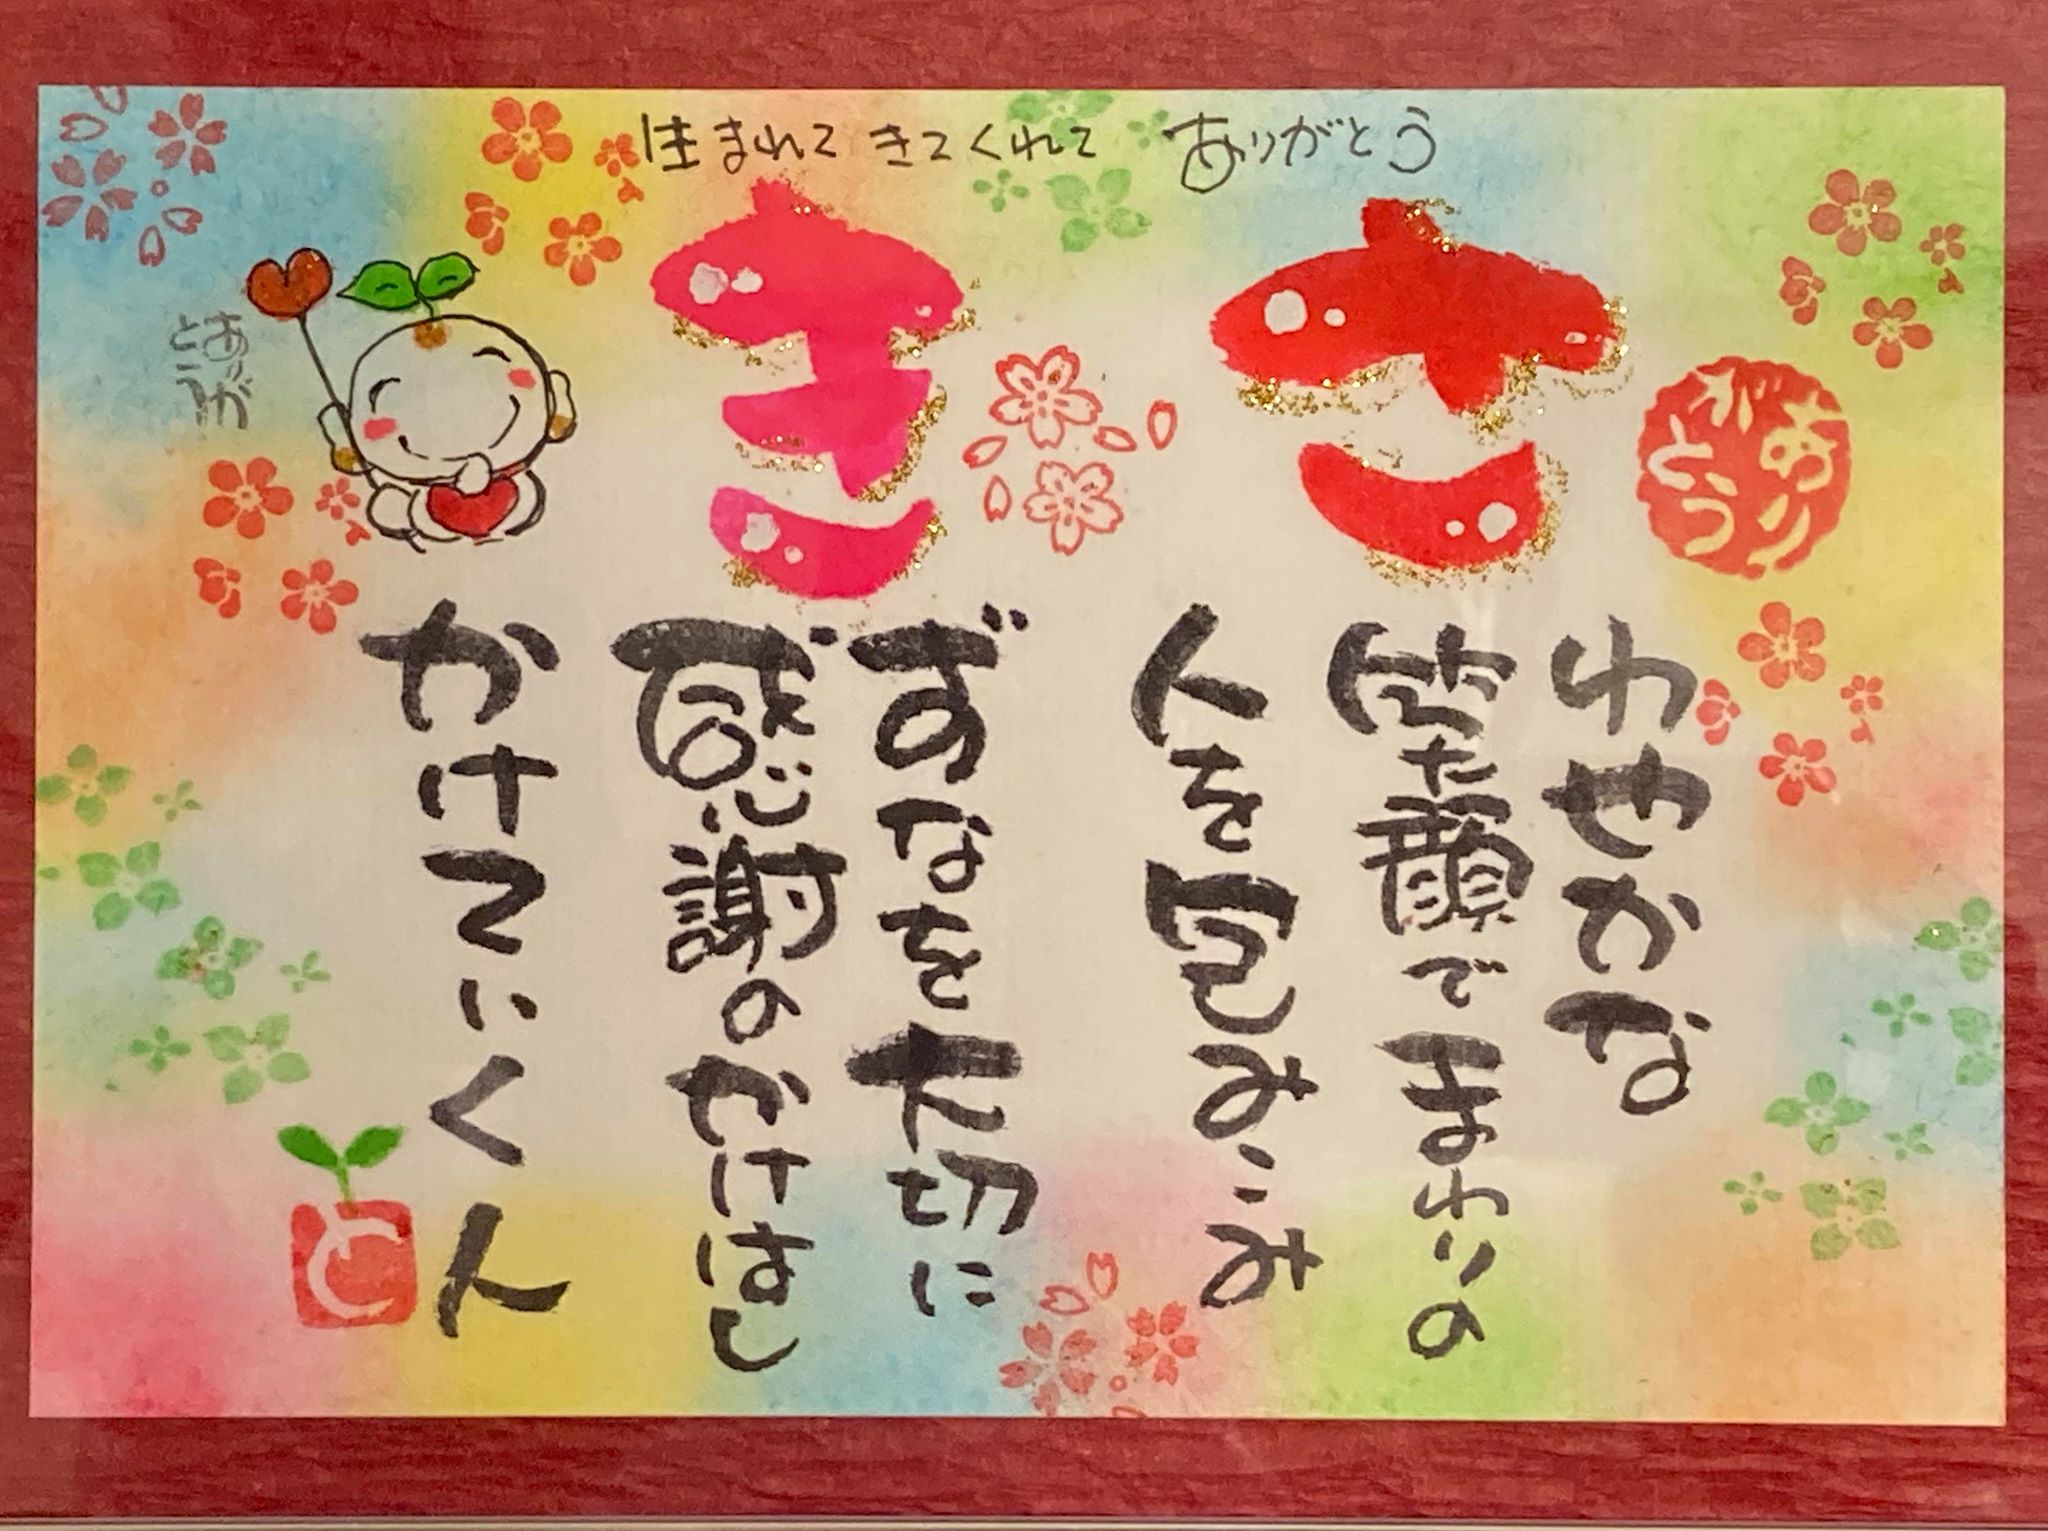 生まれてきてくれて ありがとう
ありがとう
さ
わやかな
笑た顔でまわりの
人を包みこみ
き
ずなを大切に
感謝のかけはし
かけていく人
ありがとう
と